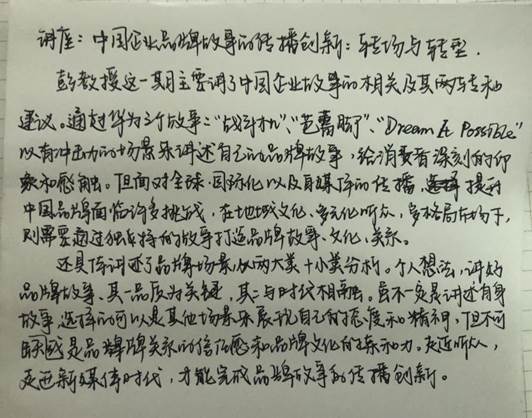 讲座：中国企业品牌故事的传播创新：转场与转型．
彭教授这一期主要讲了中国企业故事的相关及其两转和
建议。通过华为三个故事："战斗机"、"芭蕾脚"、"Dream It Possible"
以有冲击力的场景来讲述自己的品牌故事，给消费者深刻的印
象和感触。但面对全球、国际化以及自媒体的传播，提到
中国品牌面临许多挑战，在地域文化、多元化听众，多格局市场下，
则需要通过独特的故事打造品牌故事、文化、关系。
还具体讲述了品牌场景从两大类十小类分析。个人想法，讲好
品牌故事，其一品质为关键，其二与时代相融。虽不一定是讲述自身
故事，选择的可以是其他场景来展现自己的态度和精神，但不可
或是品牌关系的信任感和品牌文化的亲和力。走近听众，
走进新媒体时代，才能完成品牌故事的传播创新。